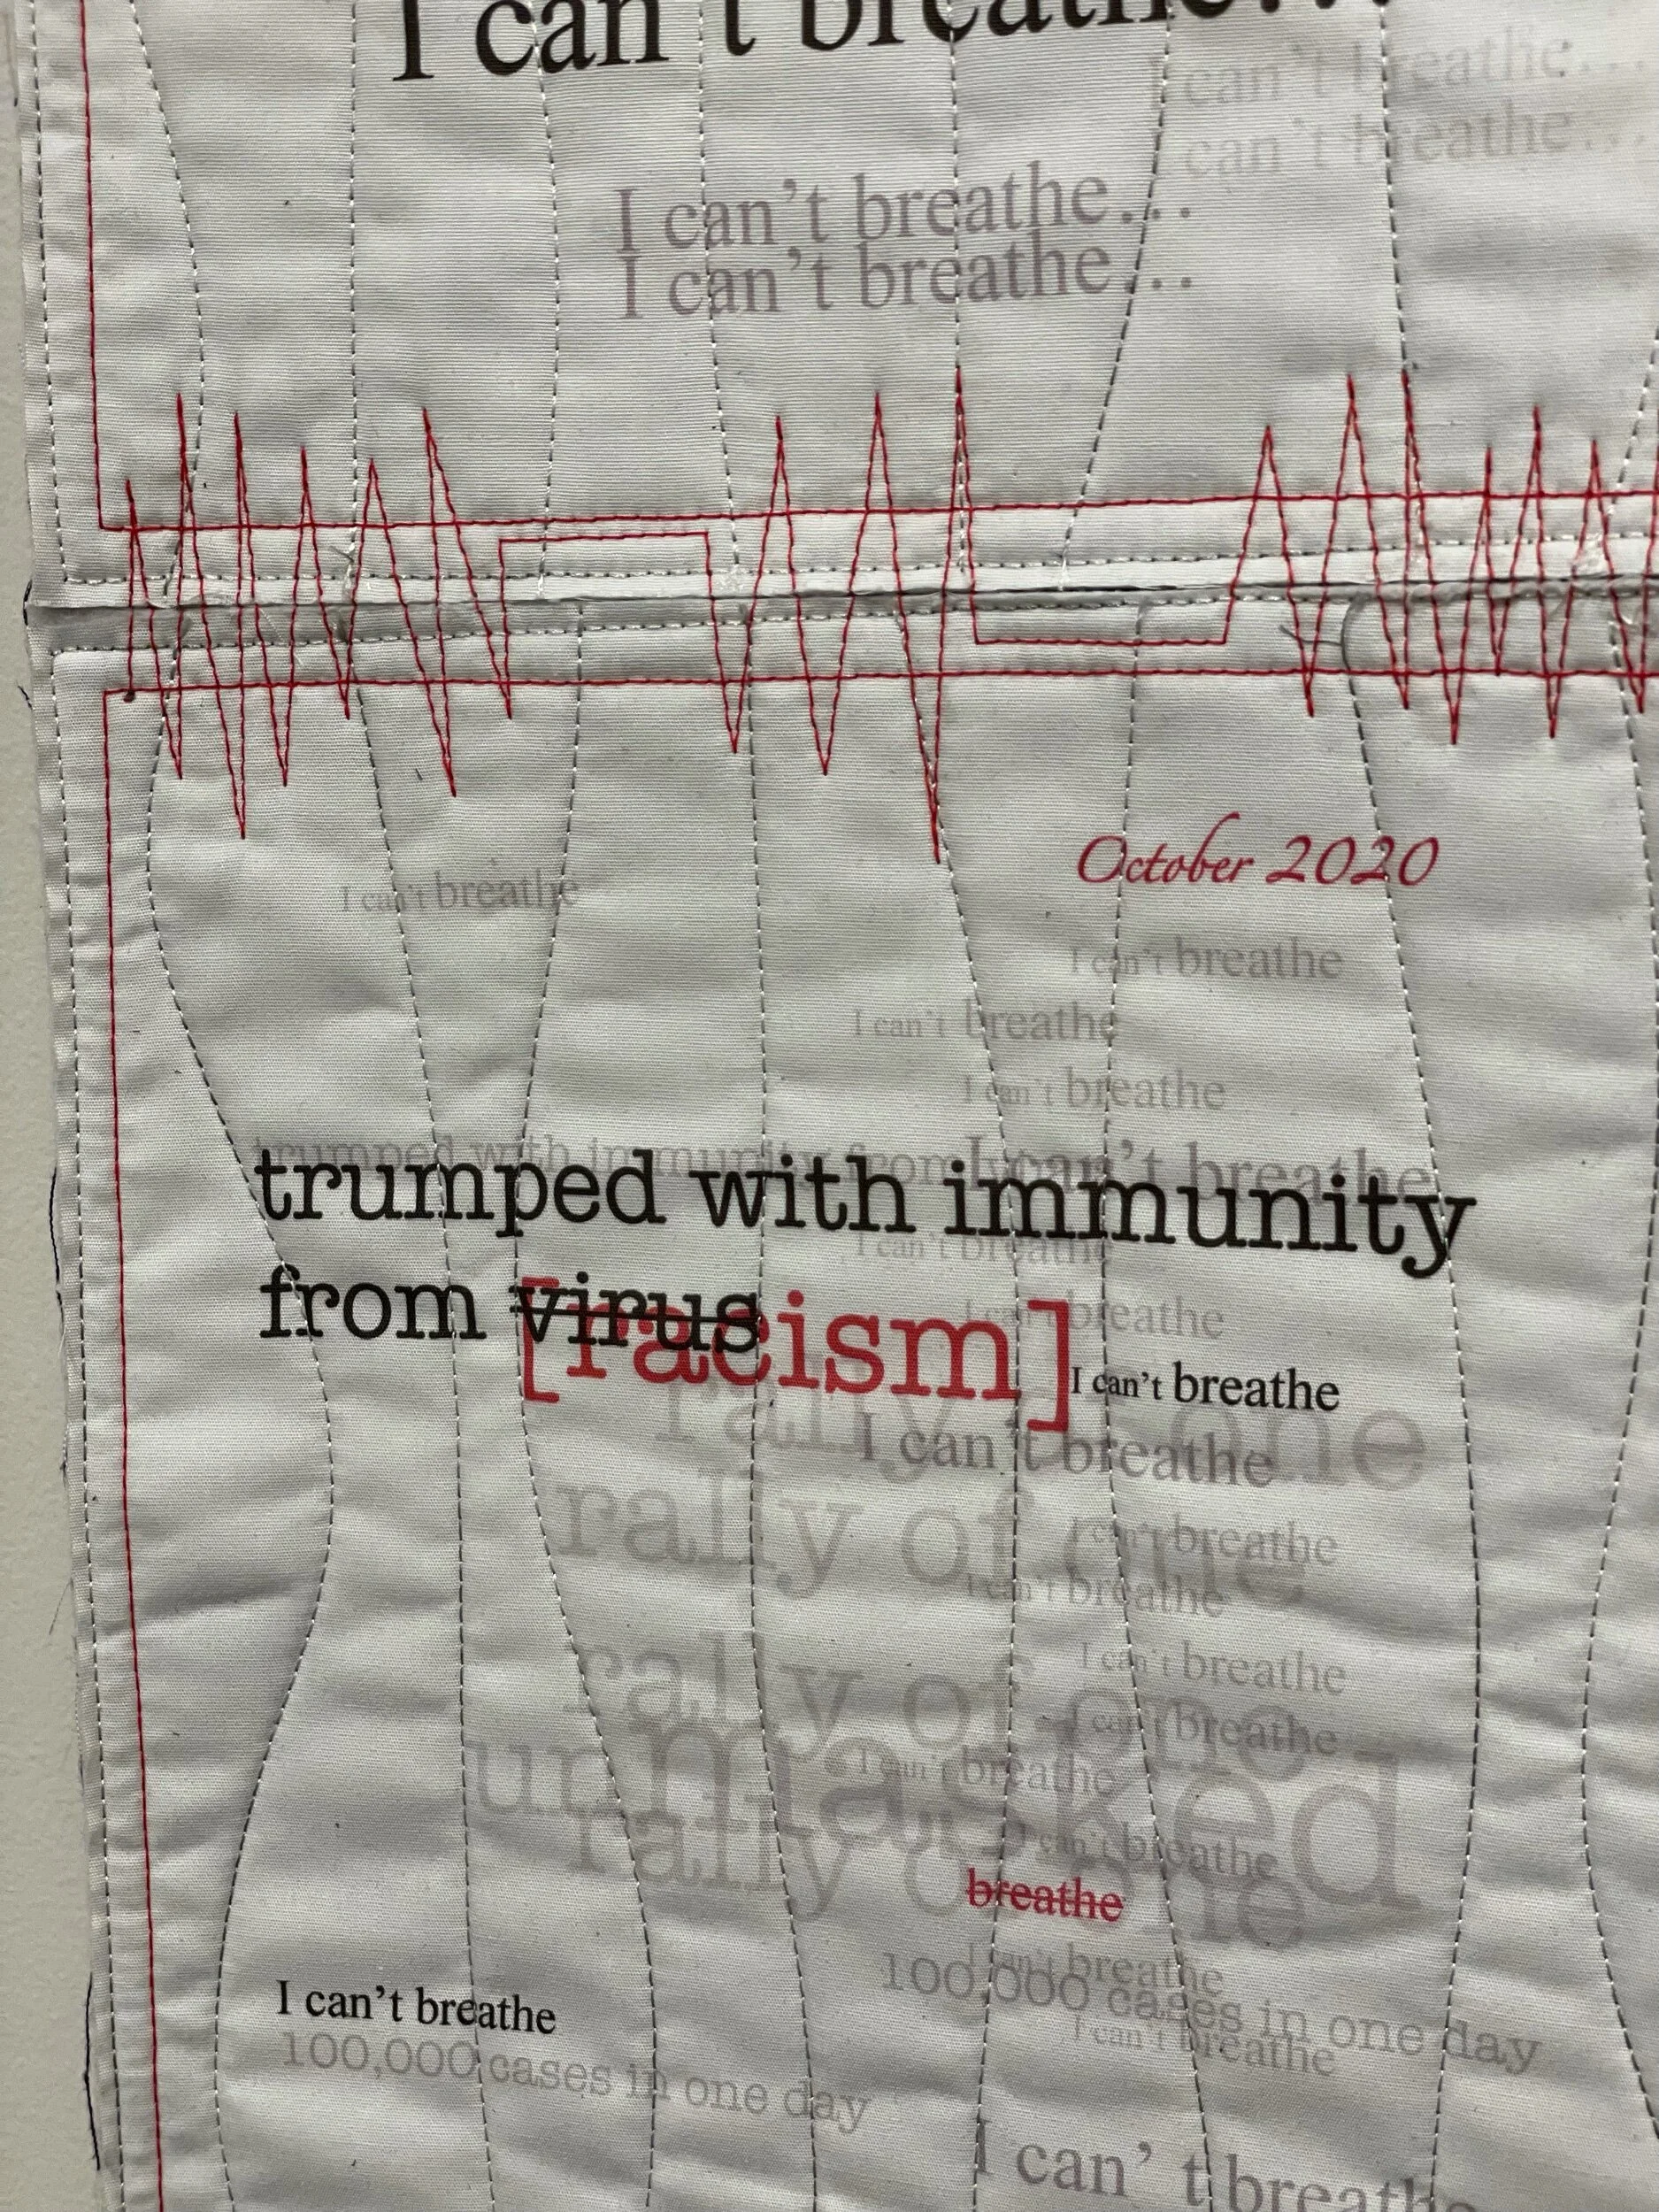 I can't breathe...
can't breathe...
can't breathe...
I can't breathe...
I can't breathe...
October 2020
I can't breathe
I can't breathe
I can't breathe
I can't breathe
trumped with immunity from I can't breathe
trumped with immunity
I can't breathe
from virus [racism]
I can't breathe
I can't breathe
rally of one
I can't breathe
rally of one
I can't breathe
I can't breathe
I can't breathe
rally of one
I can't breathe
unmasked
I can't breathe
rally of one
I can't breathe
breathe
I can't breathe
100,000 cases in one day
I can't breathe
I can't breathe
100,000 cases in one day
I can't breathe